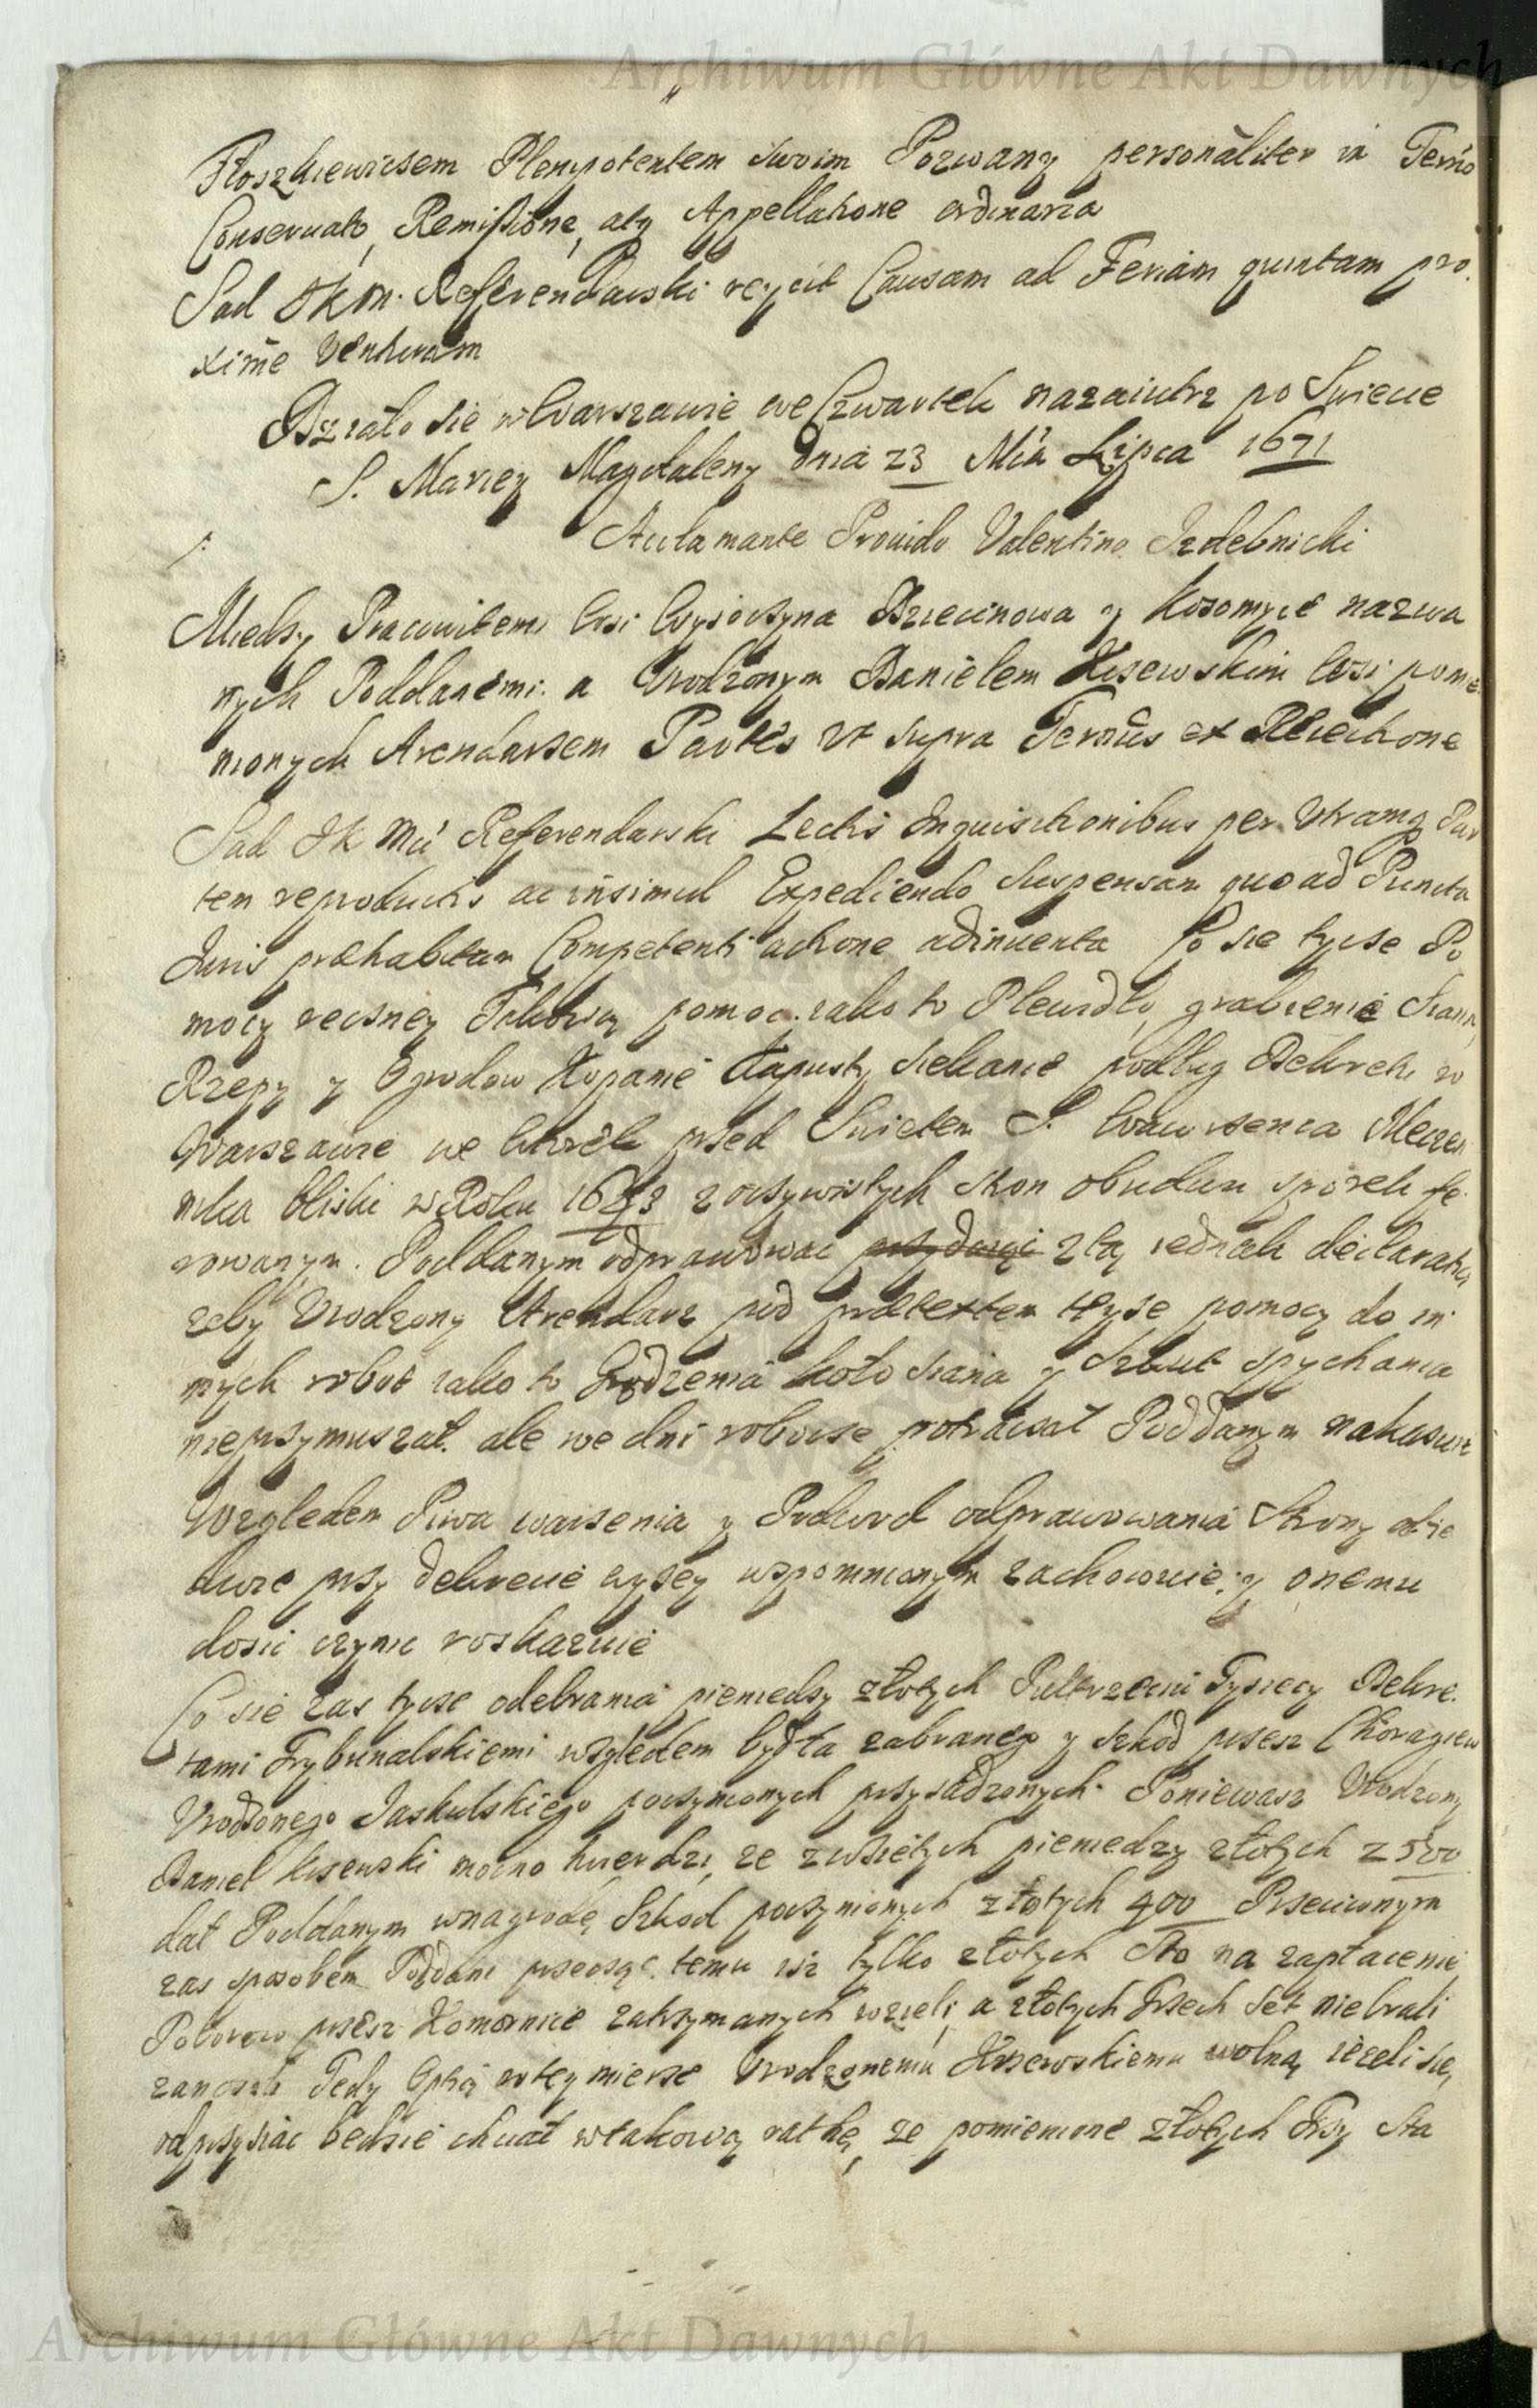 Archiwum Główne Akt Dawnych
Płoszkiewiczem Plenipotentem swoim Pozwany personaliter in Termo
Conseruato, Remissione, atq Appellatione ordinaria
Sad JKM. Referendarski reycit Causam ad Feriam quintam pro
xime Venturam
Działo sie w Warszawie we Czwartek nazaiutrz po Swiecie
S. Mariey Magdaleny dnia 23 Mca Lipca 1671
Acclamante Prouido Valentino Izdebnicki
Miedzy Pracowitemi Wsi Brzecinowa y Kosomyce nazwa
nych Poddanemi a Urodzonym Danielem Kisewskim Wsi pomie
nionych Arendarzem Partes ut supra Termus ex Reiectione
Sad JK Mci Referendarski Lectis Inquisitionibus per Utramq Par
tem reproductis ac insimul Expediendo Suspensam quoad Puncta
Juris præhabitam Competenti actione adinuenta Co sie tycze Po
mocy reczney Takowa pomoc iako to Plewidło, grabienie Siana,
Rzepy y Ogrodow Kopanie Kapusty siekanie podług Dekretu w
Warszawie we Wtorek przed Swietem S. Wawrzenca Meczen
nika bliski w Roku 1643 z oczywistych stron obudwu sporek fe
rowanym. Poddanym odprawowac z tą iednak declaratią
zeby Urodzony Arendarz pod prætextem teyze pomocy do in
nych robot iako to Grodzenia koło siana y Szkut spychania
nieprzymuszał. ale we dni robocze potrącał Poddanym nakazuie
Wzgledem Piwa warzenia y Podwod odprawowania Strony obie
dwie przy dekrecie wyzey wspomnionym zachowuie y onemu
dosic czynic roskazuie
Co sie zas tycze odebrania pieniedzy złotych Pułtrzecni Tysiecy Dekre
tami Trybunalskiemi wzgledem bydła zabranego y szkod przesz Choragiew
Urodzonego Jaskulskiego poczynionych przysadzonych. Poniewasz Urodzony
Daniel Kisewski mocno twierdzi, ze z wzietych pieniedzy złotych 2500
dał Poddanym wnagrodę Szkod poczynionych złotych 400 Przeciwnym
zas sposobem Poddani przeczą temu isz tylko złotych Sto na zapłacenie
Poborow przesz Komornice zatrzymanych wzieli, a złotych Trzech Set niebrali
Tedy w tey mierze Urodzonemu Kisewskiemu wolną iezeli sie,
odprzysiac bedzie chciał w takową rothę, ze pomienione złotych Trzy Sta
Archiwum Główne Akt Dawnych